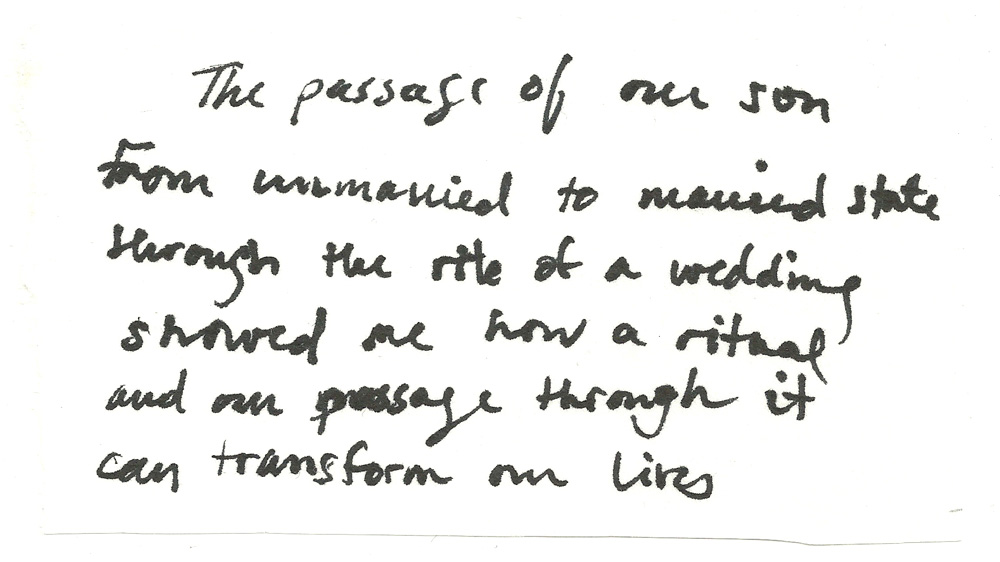 The passage of our son
From unmarried to married state
through the rite of a wedding
showed me how a ritual
and our passage through it
can transform our lives